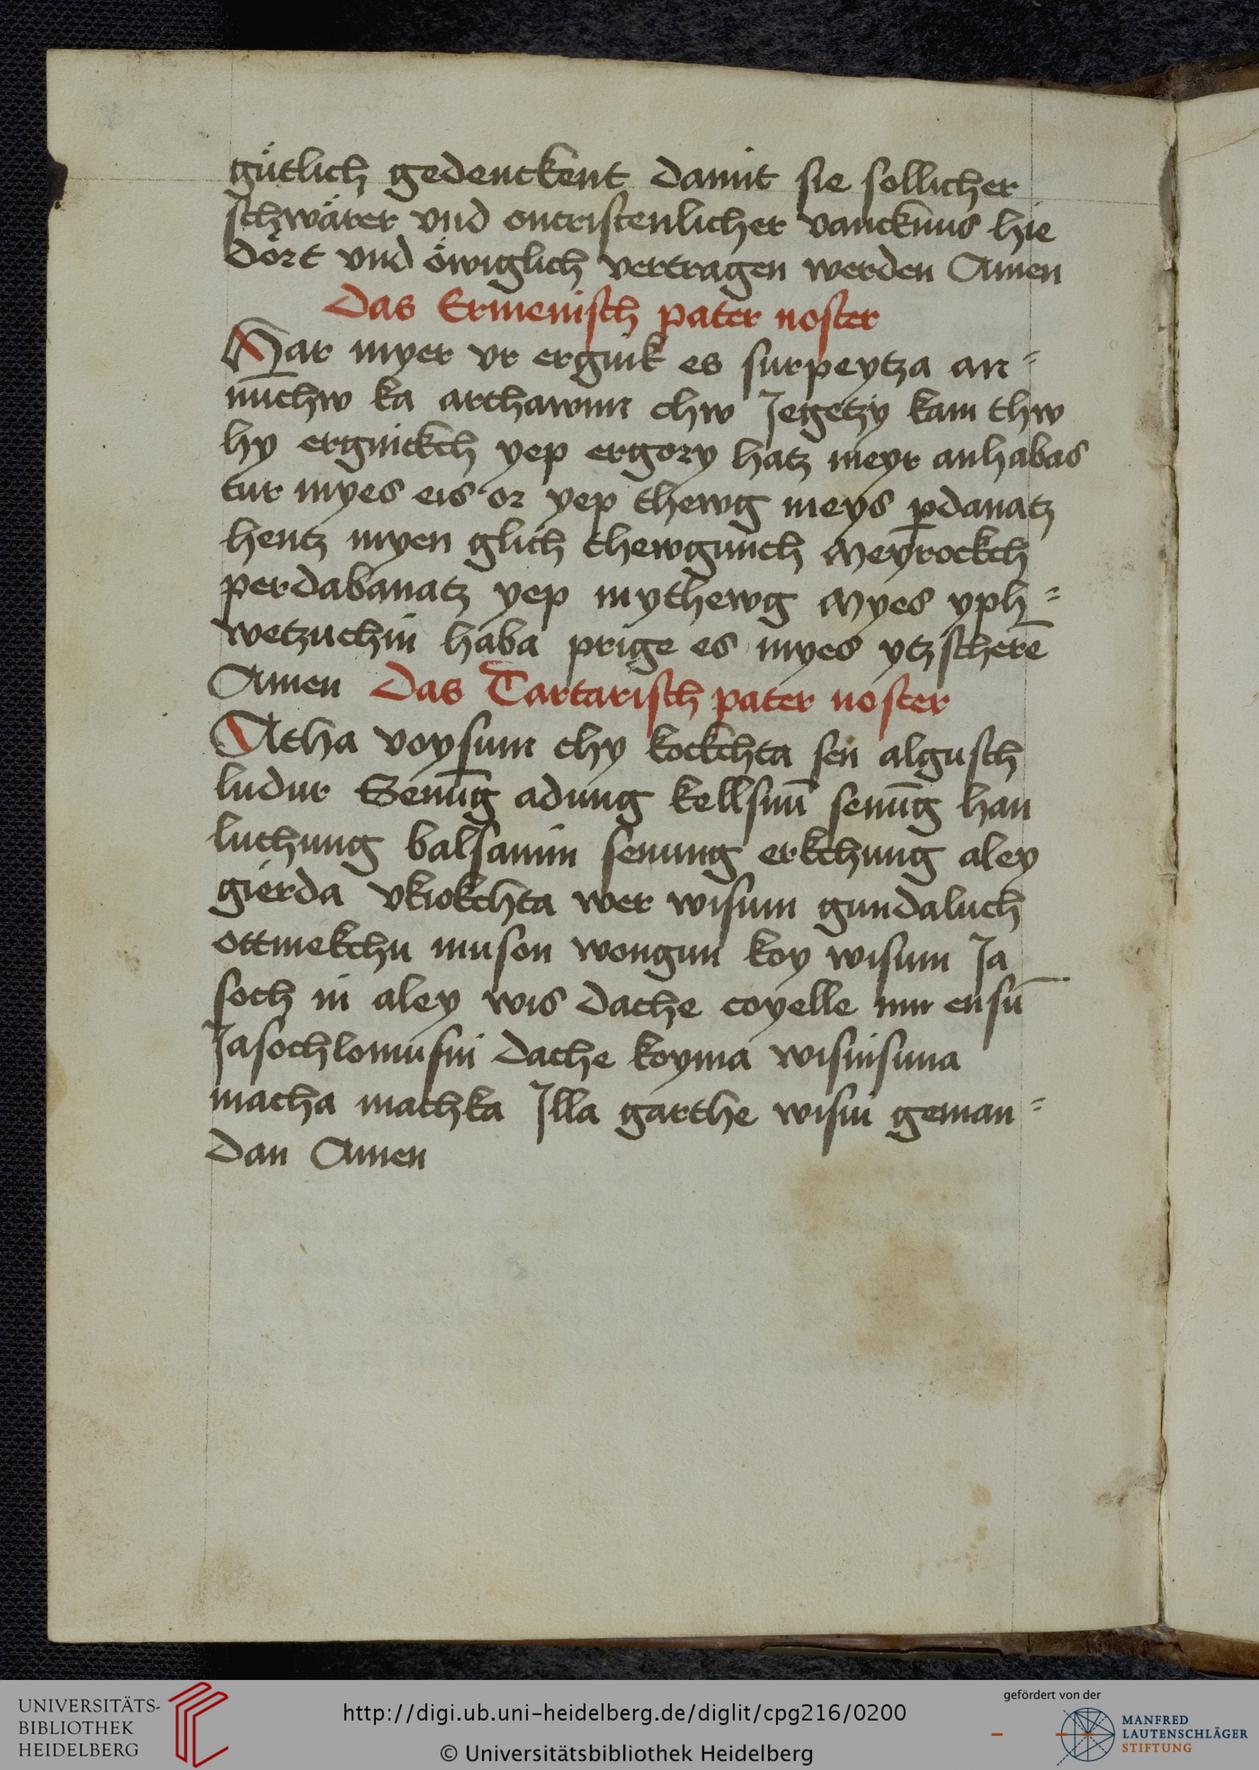 gůtlich gedenckent damit sie sollicher
schwärer vnd oncristenlicher vancknus hie
dört vnd öwiglich vertragen werden Amen
Das Ermenisch pater noster
Har myer ur ergink es surpeytza an=
nuchw ka archawun chw Jegetzy kam thw
hy ergnickch yep ergory hatz meyr anhabas
tur myes eis or yep thewg meys pdanatz
hentz myen glich thewgunch Meyrockch
perdabanatz yep mythewg Myes yph=
wetzuchin haba prige es myes ytzscherē
Amen Das Tartarisch pater noster
Atha voysum chy kockchta sen algusch
ludur Senūg adung kellsuū senūg han
luchung balsamin senung erkchung aley
gierda vkiokchta wer wisum gundaluch
ottmekchu muson wongun koy wisum Ja
soch in aley wis dache coyelle nin ensū
Jasochlomusin dache koyma wisinsuna
macha machka Jlla garthe wisin geman=
dan Amen
UNIVERSITÄTS-
BIBLIOTHEK
HEIDELBERG
http://digi.ub.uni-heidelberg.de/diglit/cpg216/0200
© Universitätsbibliothek Heidelberg
gefördert von der
MANFRED
LAUTENSCHLÄGER
STIFTUNG